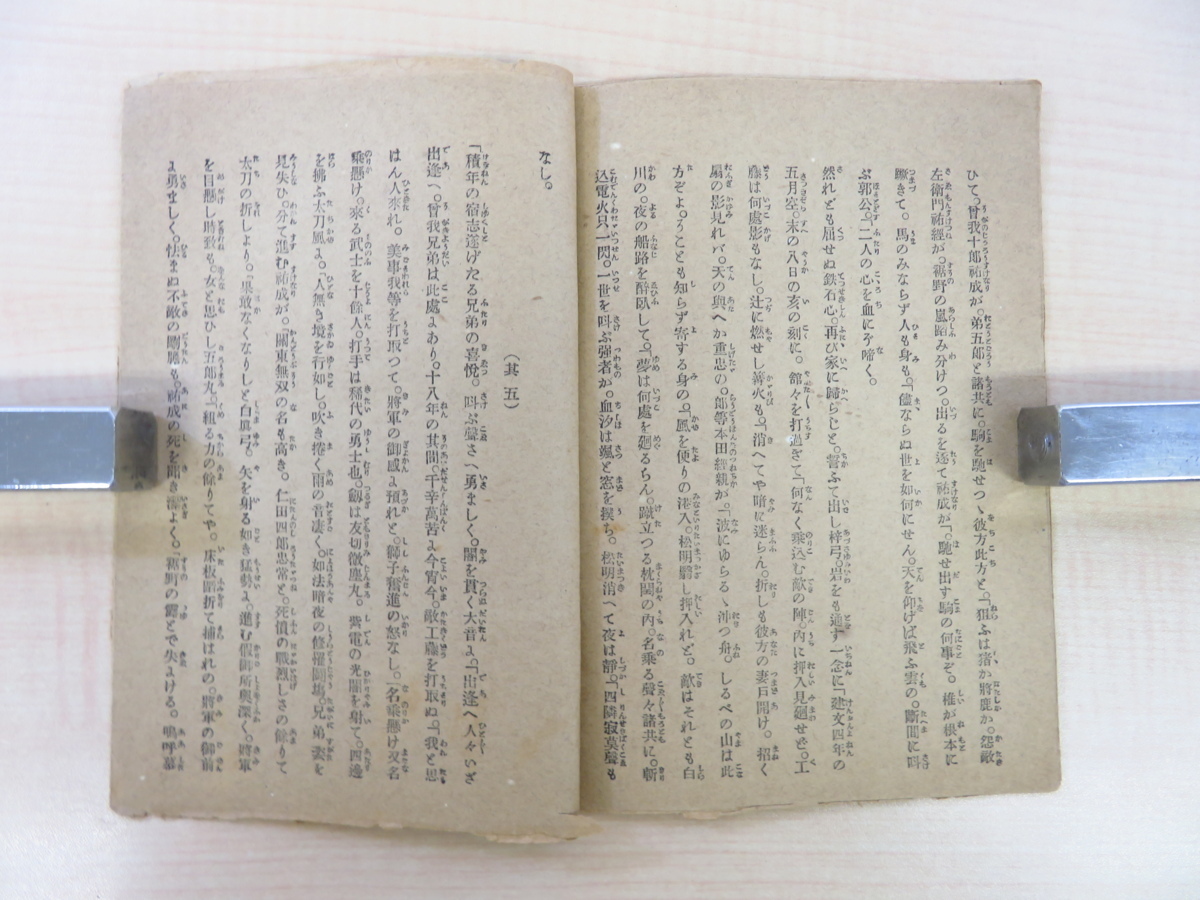 ひて。曾我十郎祐成が。弟五郎と諸共に。駒を馳せつゝ彼方此方と。「狙ふは猪か將鹿か。怨敵
左衛門祐經が。裾野の嵐踏み分けつ。出るを逐て祐成が。「馳せ出す駒の何事ぞ。椎が根本に
蹶きて。馬のみならず人も身も。「儘ならぬ世を如何にせん。天を仰げば飛ふ雲の。斷間に叫
ぶ郭公。「二人の心を血に啼く。
然れども屈せぬ鉄石心。再び家に歸らじと。誓ふて出し梓弓。岩をも通す一念に「建文四年の
五月空。末の八日の亥の刻に。館々を打過ぎて「何なく乘込む敵の陣。内に押入見廻せど。工
藤は何處影もなし。辻に燃せし篝火も。「消へてや暗に迷らん。折しも彼方の妻戸開け。招く
扇の影見れバ。天の與へか重忠の。郎等本田經親が。「波にゆらるゝ沖つ舟。しるべの山は此
方ぞよ。うことも知らず寄する身の。「風を便りの港入。松明翳し押入れど。敵はそれとも白
川の。夜の船路を醉臥して。「夢は何處を廻るらん。蹴立つる枕閾の内。名乘る聲々諸共に。斬
込電火只一閃。一世を叫ぶ強者が。血汐は颯と窓を撲ち。松明消へて夜は靜。「四隣寂寞聲も
なし。
(其五)
「積年の宿志遂げたる兄弟の喜悅。叫ぶ聲さへ勇ましく。闇を貫く大音よ。「出逢へ人々いざ
出逢へ。曾我兄弟は此處よわり。十八年の其間。千辛萬苦よ今宵今。敵工藤を打取ぬ。「我と思
はん人來れ。美事我等を打取つて。將軍の御感よ預れと。獅子奮進の怒なし。「名乘懸け双名
乘懸け。來る武士を十餘人。打手は稀代の勇士也。劔は友切微塵丸。紫電の光闇を射て。四邊
を拂ふ太刀風よ。「人無き境を行如し。吹き捲く雨の音凄く。如法暗夜の修羅鬪塲。兄弟姿を
見失ひ。分て進む祐成が。「關東無双の名も高き。仁田四郎忠常と。死憤の戰烈しさの餘りて
太刀の折しより。「果敢なくなりしと白眞弓。矢を射る如き猛勢よ。進む假御所奧深く。將軍
を目懸し時致も。女と思ひし五郎丸。「組る力の餘りてや。床板踏折て捕はれの。將軍の御前
よ勇ましく。怯まぬ不敵の剛膽も。祐成の死を聞き潔よく。「裾野の露とで失よける。嗚呼慕